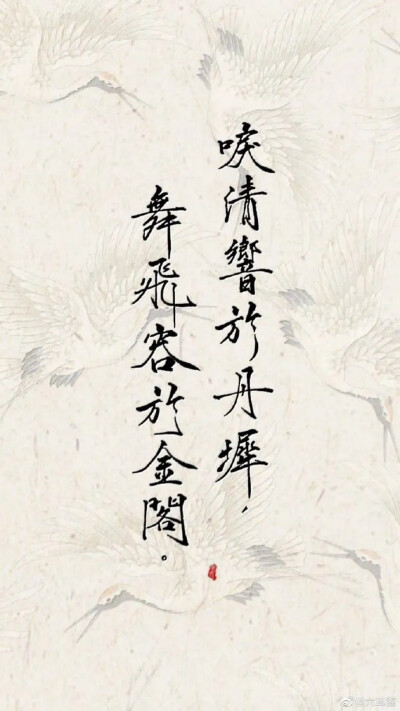 唳清響於丹墀,
舞飛容於金閣。